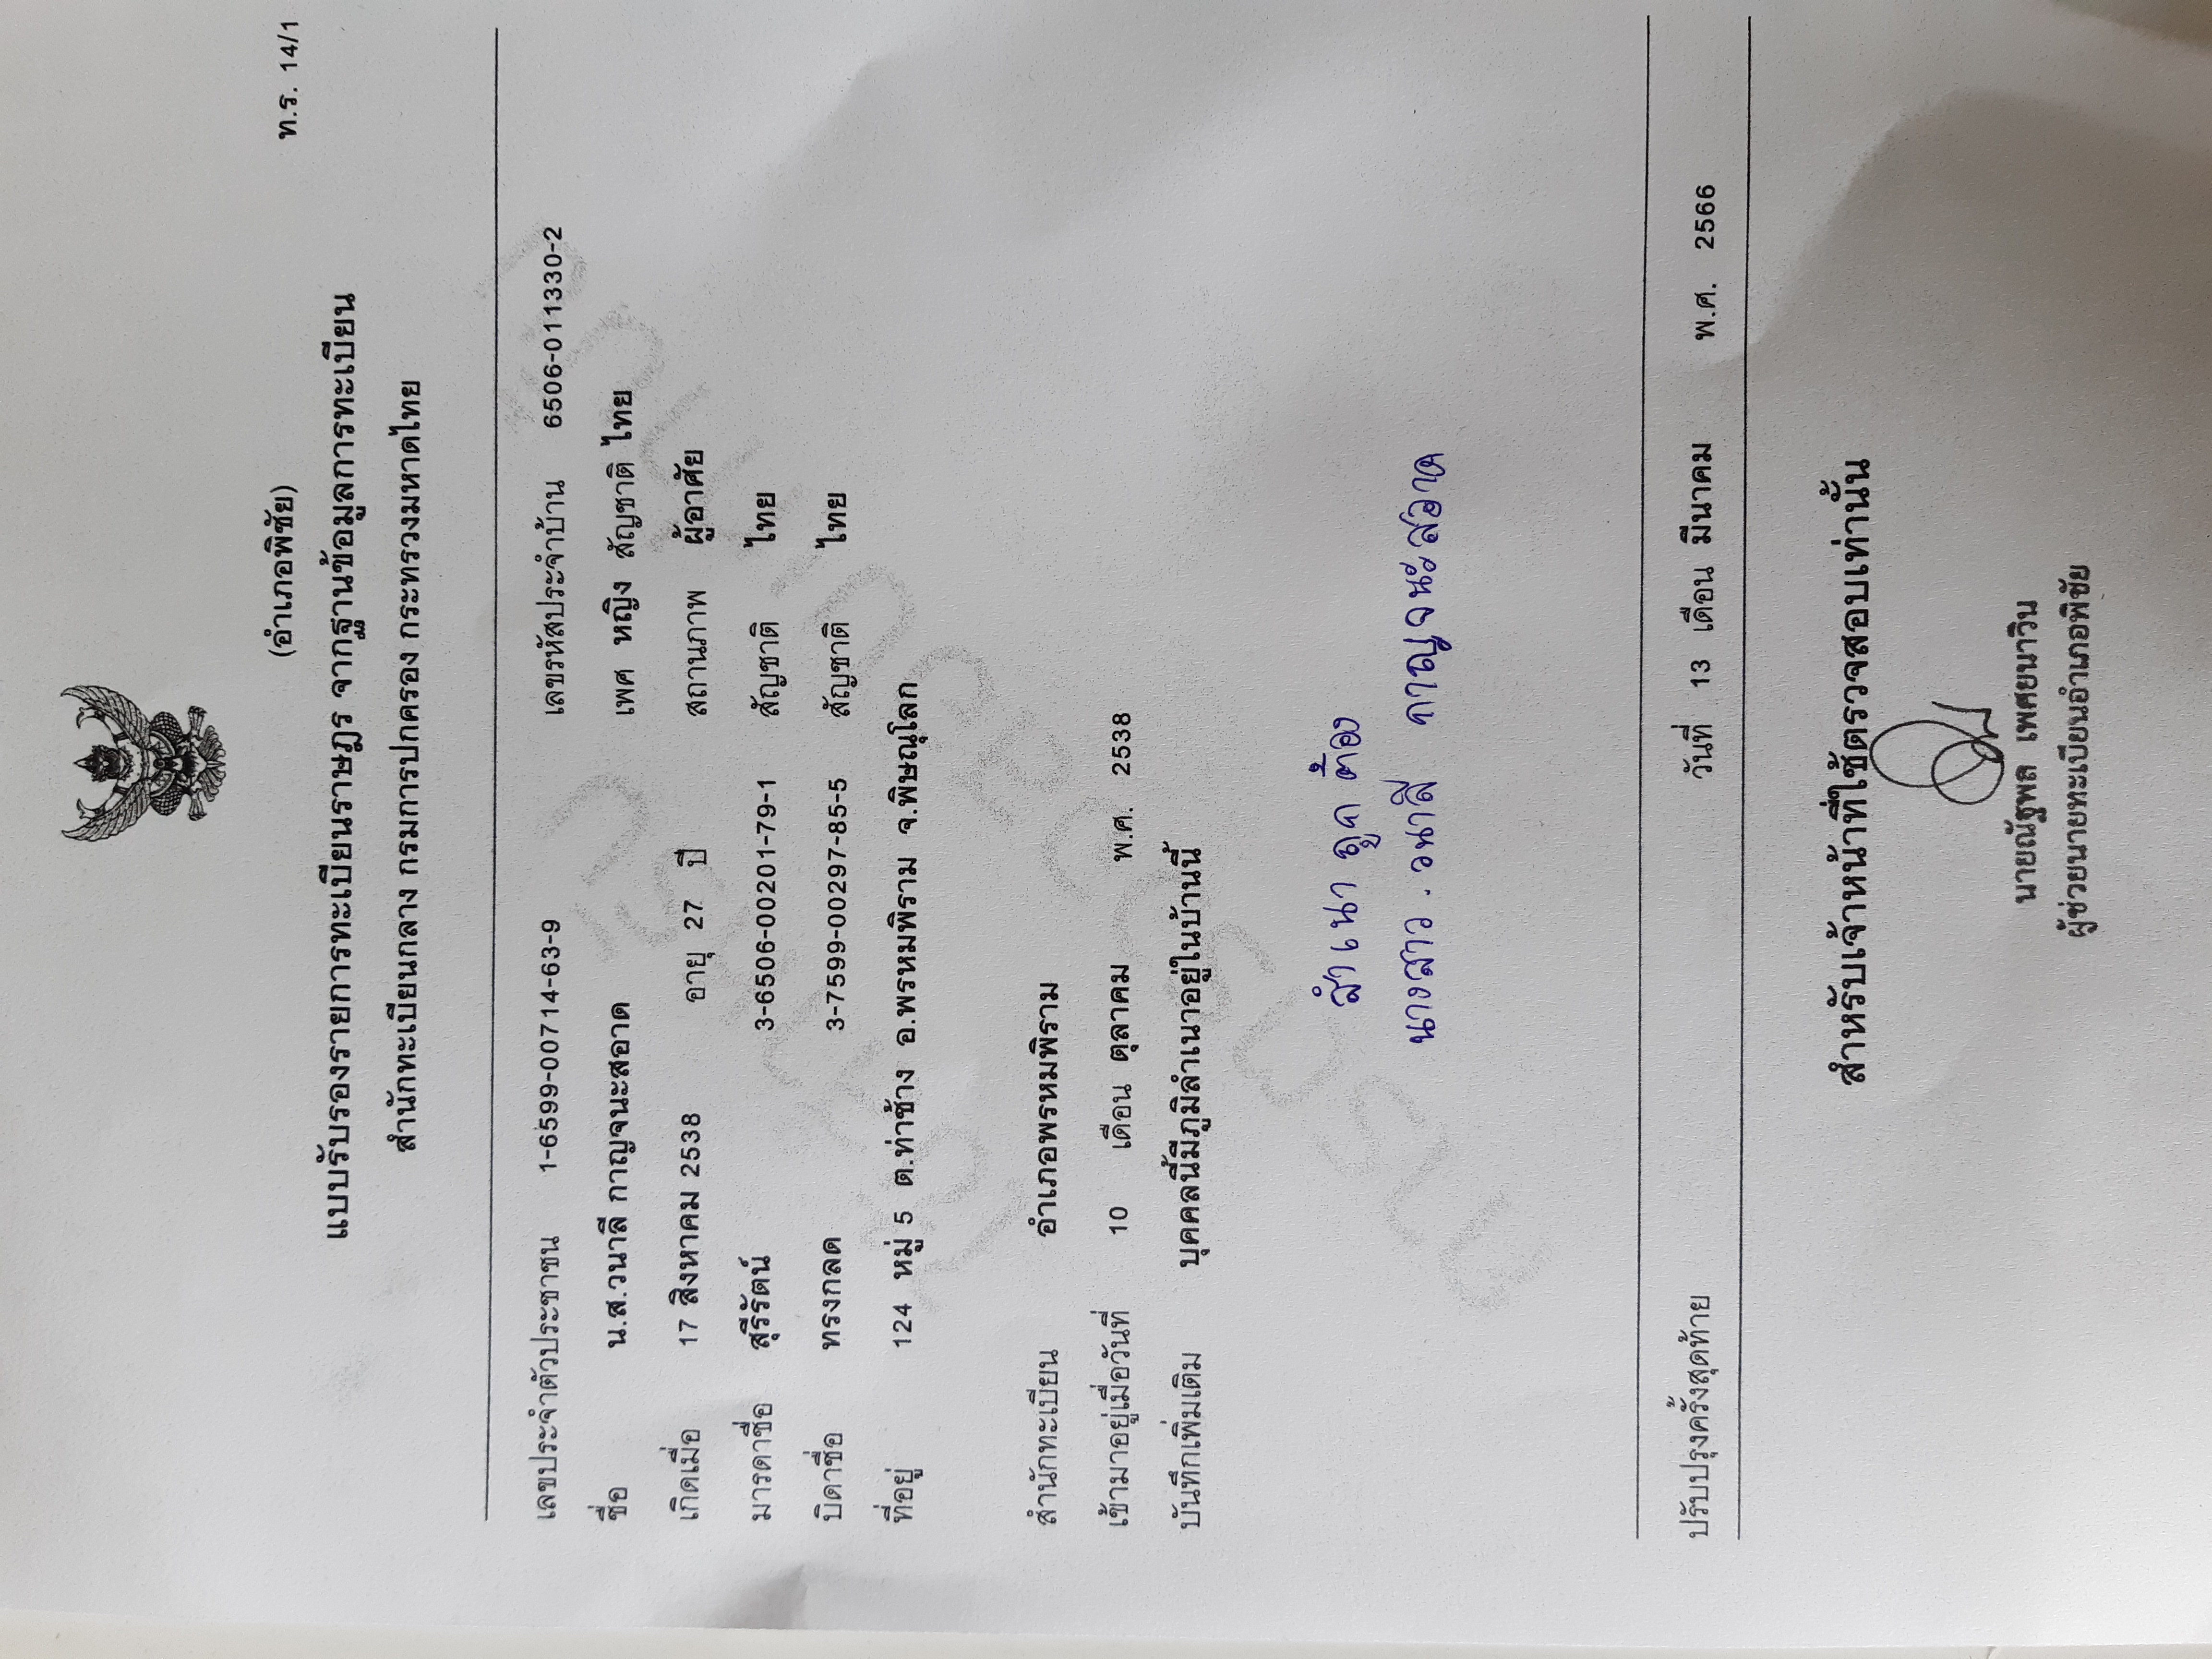 ท.ร. 14/1
(อำเภอพิชัย)
แบบรับรองรายการทะเบียนราษฎร จากฐานข้อมูลการทะเบียน
สำนักทะเบียนกลาง กรมการปกครอง กระทรวงมหาดไทย
เลขประจำตัวประชาชน 1-6599-00714-63-9 เลขรหัสประจำบ้าน 6506-011330-2
ชื่อ น.ส.วนาลี กาญจนะสอาด เพศ หญิง สัญชาติ ไทย
เกิดเมื่อ 17 สิงหาคม 2538 อายุ 27 ปี สถานภาพ ผู้อาศัย
มารดาชื่อ สุรีรัตน์ 3-6506-00201-79-1 สัญชาติ ไทย
บิดาชื่อ ทรงกลด 3-7599-00297-85-5 สัญชาติ ไทย
ที่อยู่ 124 หมู่ 5 ต.ท่าช้าง อ.พรหมพิราม จ.พิษณุโลก
สำนักทะเบียน อำเภอพรหมพิราม
เข้ามาอยู่เมื่อวันที่ 10 เดือน ตุลาคม พ.ศ. 2538
บันทึกเพิ่มเติม บุคคลนี้มีภูมิลำเนาอยู่ในบ้านนี้
สำเนาถูกต้อง
นางสาว.วนาลี กาญจนะสอาด
ปรับปรุงครั้งสุดท้าย วันที่ 13 เดือน มีนาคม พ.ศ. 2566
สำหรับเจ้าหน้าที่ใช้ตรวจสอบเท่านั้น
นายณัฐพล เพศยนาวิน
ผู้ช่วยนายทะเบียนอำเภอพิชัย